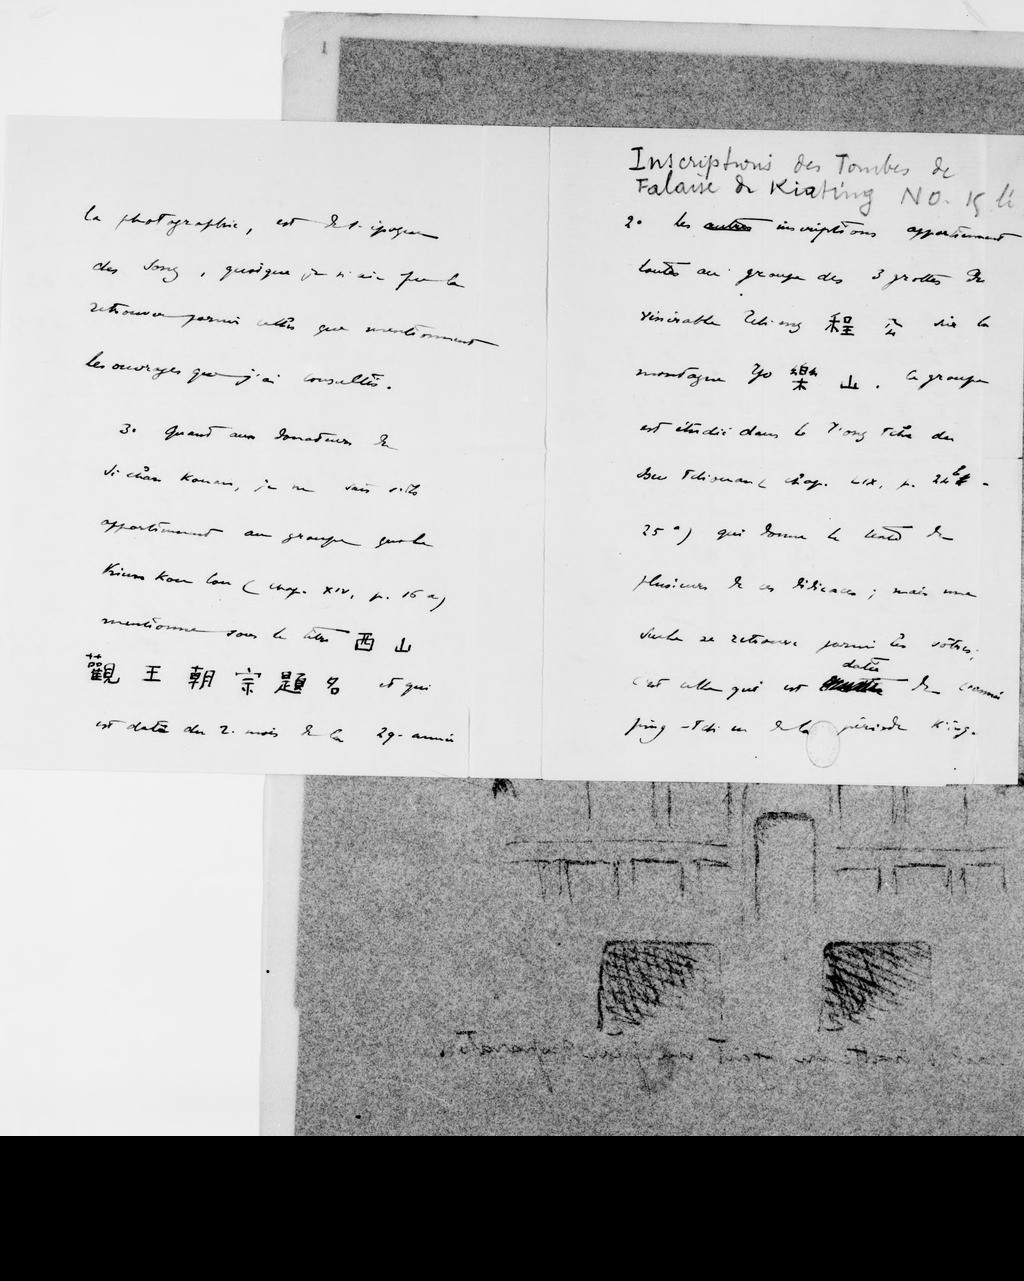 la photographie, est de l'époque
des Song, quoique je n'aie pu la
retrouver parmi celles que mentionnent
les ouvrages que j'ai consultés.
3° Quant aux donateurs du
Si chan Kouan, je ne sais s'ils
appartiennent au groupe que le
Kiun Kou lou (chap. XIV, p. 16 a)
mentionne sous le titre 西山
觀王朝宗題名 et qui
est daté du 2e mois de la 29e année
Inscriptions des Tombes de
Falaise de Kiating No. 15 li
2° Les autres inscriptions appartiennent
toutes au groupe des 3 grottes du
vénérable Tch'eng 程公 sur la
montagne Yo 樂山. Ce groupe
est étudié dans le T'ong tche du
Sseu tch'ouan (chap. LIX, p. 24 b -
25 a) qui donne le texte de
plusieurs de ces dédicaces; mais une
seule se retrouve parmi les vôtres;
c'est celle qui est datée de
de la période King-